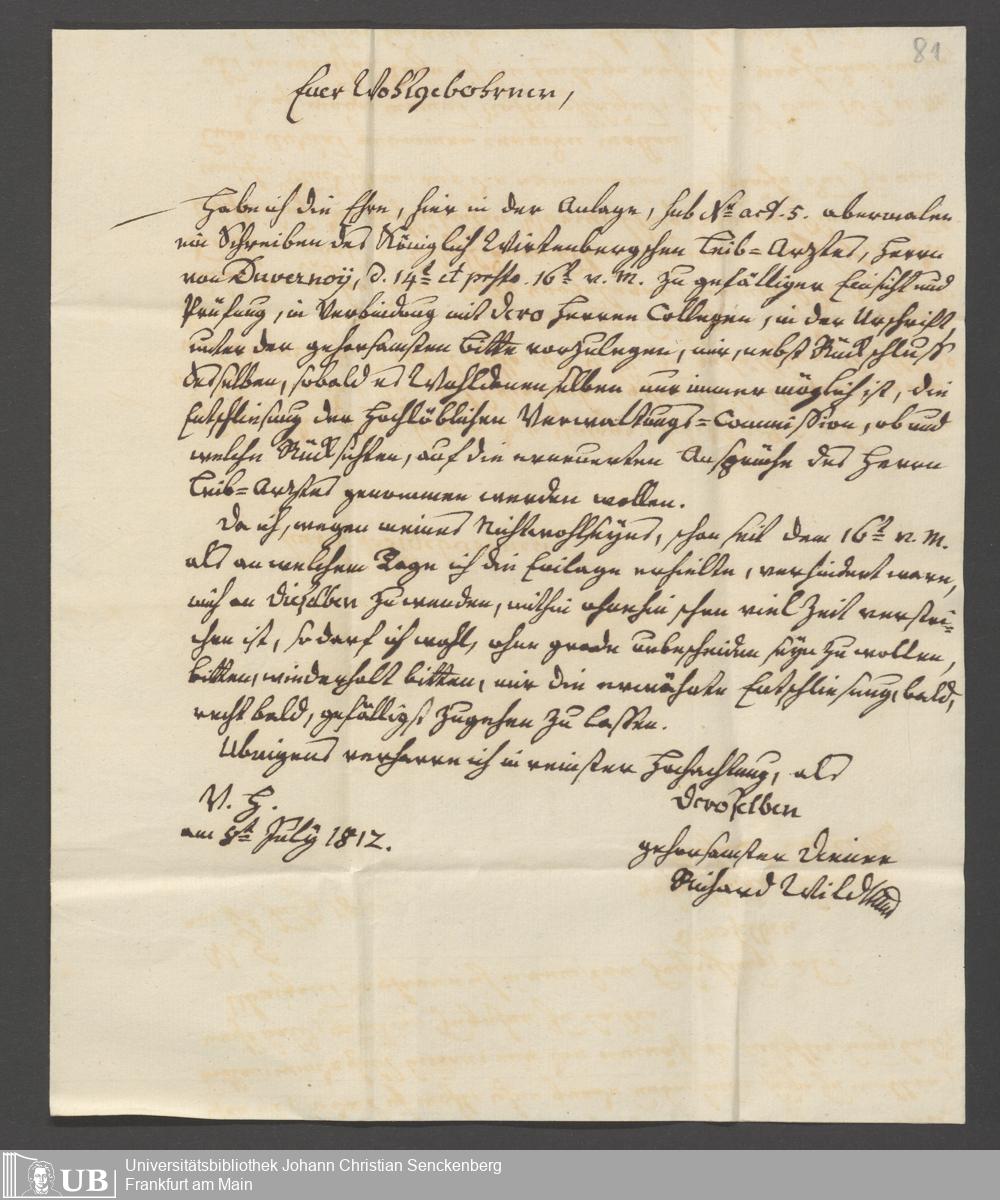 81
Euer Wohlgebohrnen,
Habe ich die Ehre, hier in der Anlage, sub Nro act. 5. abermalen
ein Schreiben des Königlich Wirtenbergschen Leib=Arztes, Herrn
von Duvernoÿ, d. 14t et psto. 16t v. M. zu gefälliger Einsicht und
Prüfung, in Verbindung mit dero Herren Collegen, in der Urschrift,
unter der gehorsamsten Bitte vorzulegen, mir, nebst Rückschluss
desselben, sobald es Wohldenenselben nur immer möglich ist, die
Entschliesung der Hochlöblichen Verwaltungs=Commission, ob und
welche Rücksichten, auf die erneuerten Ansprüche des Herrn
Leib=Arztes genommen werden wollen.
Da ich, wegen meines Nichtwohlseyns, schon seit dem 16t v. M.
als an welchem Tage ich die Beilage erhielte, verhindert ware,
mich an Dieselben zu wenden, mithin ohnehin schon viel Zeit verstri=
chen ist, so darf ich wohl, ohne grade unbescheiden seÿn zu wollen,
bitten, wiederholt bitten, mir die erwähnte Entschliesung, bald,
recht bald, gefälligst zugehen zu lassen.
Übrigens verharre ich in reinster Hochachtung, als
V. H.
am 8t Julÿ 1812.
Deroselben
gehorsamster Diener
Richard Wild
UB
Universitätsbibliothek Johann Christian Senckenberg
Frankfurt am Main